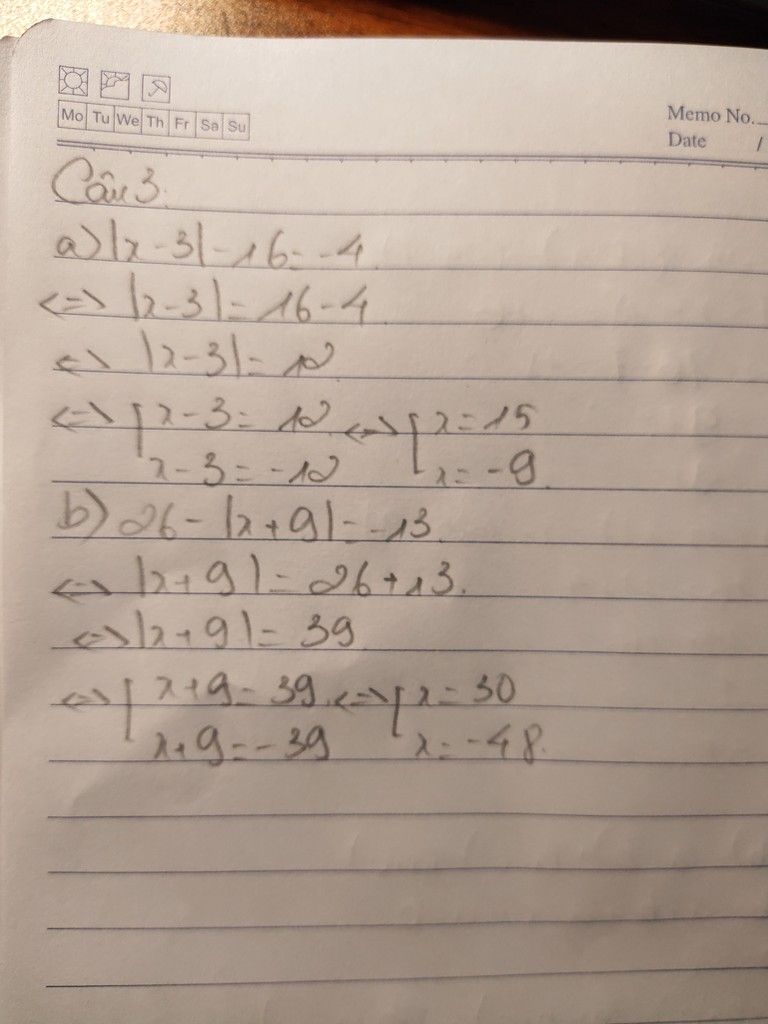 Mo Tu We Th Fr Sa Su
Memo No.
Date /
Câu 3.
a) |x - 3| - 16 = -4
<=> |x - 3| = 16 - 4
<=> |x - 3| = 12
<=> [ x - 3 = 12 <=> [ x = 15
x - 3 = -12 x = -9
b) 26 - |x + 9| = -13.
<=> |x + 9| = 26 + 13.
<=> |x + 9| = 39
<=> [ x + 9 = 39 <=> [ x = 30
x + 9 = -39 x = -48.